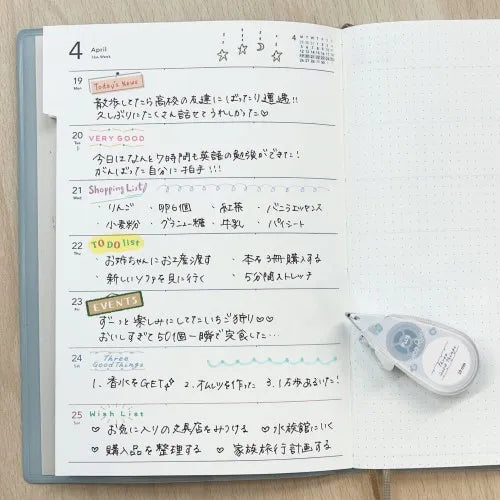 4 April
19 Mon Today's News
散歩してたら高校の友達にばったり遭遇!!
久しぶりにたくさん話せてうれしかった♡
20 Tue VERY GOOD
今日はなんと7時間も英語の勉強ができた!
がんばった自分に拍手!!!
21 Wed Shopping List!
・りんご ・卵6個 ・紅茶 ・バニラエッセンス
・小麦粉 ・グラニュー糖 ・牛乳 ・パイシート
22 Thu TO DO list
・お姉ちゃんにお土産渡す ・本を3冊購入する
・新しいソファを見に行く ・5分間ストレッチ
23 Fri EVENTS
ずーっと楽しみにしてたいちご狩り♡♡
おいしすぎて50個一瞬で完食してた…
24 Sat Three Good Things
1. 香水をGET 2. オムレツを作った 3. 1万歩あるいた!
25 Sun Wish List
♡ お気に入りの文具店をみつける ♡ 水族館にいく
♡ 購入品を整理する ♡ 家族旅行計画する
Three Good Things